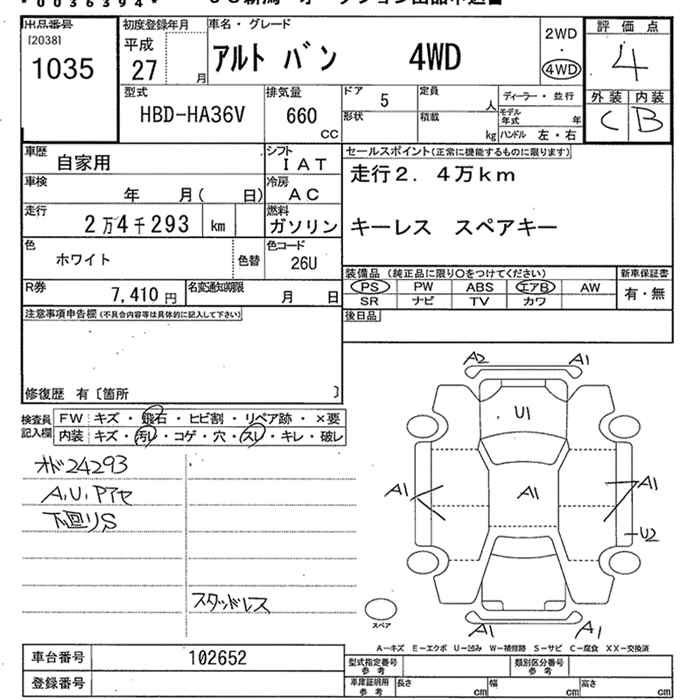 *0036394*
出品番号
[2038]
1035
初度登録年月
平成
27 月
車名・グレード
アルト バン 4WD
2WD
・
4WD
評価点
4
外装 内装
C B
型式
HBD-HA36V
排気量
660
cc
ドア
5
定員
人
形状
積載
kg
ディーラー・並行
モデル
年式
年
ハンドル 左・右
車歴
自家用
シフト
IAT
セールスポイント(正常に機能するものに限ります)
走行2.4万km
キーレス スペアキー
車検
年 月( 日)
冷房
AC
走行
2万4千293 km
燃料
ガソリン
色
ホワイト
色替
色コード
26U
装備品(純正品に限り○をつけてください)
PS PW ABS エアB AW
SR ナビ TV カワ
新車保証書
有・無
R券
7,410 円
名変通知期限
月 日
後日品
注意事項申告欄(不具合内容等は具体的に記入して下さい)
修復歴 有〔箇所 〕
検査員
記入欄
FW キズ・飛石・ヒビ割・リペア跡・×要
内装 キズ・汚レ・コゲ・穴・スレ・キレ・破レ
オド24293
A,U,Pアセ
下回りS
スタッドレス
A2 A1
U1
A1
A1
A1
U2
A1 A1
スペア
A-キズ E-エクボ U-凹み W-補修跡 S-サビ C-腐食 XX-交換済
車台番号 102652
登録番号
型式指定番号
参考
類別区分番号
参考
車庫証明用
参考
長さ cm
幅 cm
高さ cm